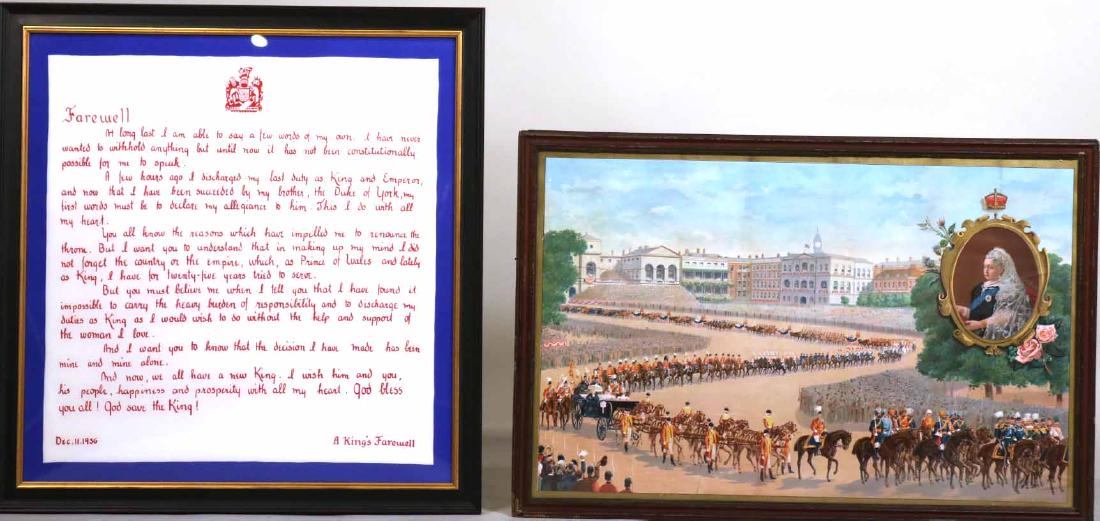 Farewell
At long last I am able to say a few words of my own. I have never
wanted to withhold anything but until now it has not been constitutionally
possible for me to speak.
A few hours ago I discharged my last duty as King and Emperor,
and now that I have been succeeded by my brother, the Duke of York, my
first words must be to declare my allegiance to him. This I do with all
my heart.
You all know the reasons which have impelled me to renounce the
throne. But I want you to understand that in making up my mind I did
not forget the country or the empire, which, as Prince of Wales and lately
as King, I have for twenty-five years tried to serve.
But you must believe me when I tell you that I have found it
impossible to carry the heavy burden of responsibility and to discharge my
duties as King as I would wish to do without the help and support of
the woman I love.
And I want you to know that the decision I have made has been
mine and mine alone.
And now, we all have a new King. I wish him and you,
his people, happiness and prosperity with all my heart. God bless
you all! God save the King!
Dec. 11. 1936 A King's Farewell